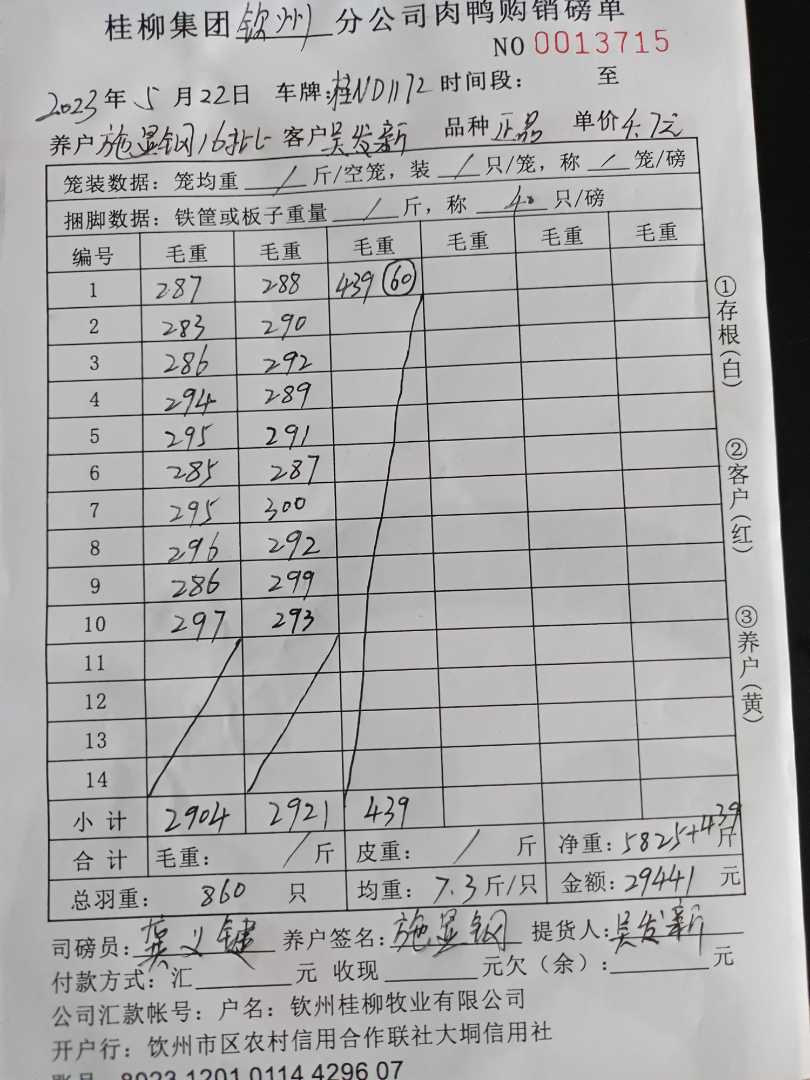 桂柳集团钦州分公司肉鸭购销磅单
NO 0013715
2023年5月22日 车牌:桂ND1172 时间段: 至
养户施显钢16批 客户吴发新 品种正品 单价4.7元
笼装数据：笼均重 / 斤/空笼，装 / 只/笼，称 / 笼/磅
捆脚数据：铁筐或板子重量 / 斤，称 40 只/磅
编号 毛重 毛重 毛重 毛重 毛重 毛重
1 287 288 439 60
2 283 290
3 286 292
4 294 289
5 295 291
6 285 287
7 295 300
8 296 292
9 286 299
10 297 293
11
12
13
14
小计 2904 2921 439
合计 毛重: / 斤 皮重: / 斤 净重:5825+439斤
总羽重: 860 只 均重: 7.3斤/只 金额:29441元
司磅员:龚义键 养户签名:施显钢 提货人:吴发新
付款方式：汇 元 收现 元欠（余）: 元
公司汇款帐号：户名：钦州桂柳牧业有限公司
开户行：钦州市区农村信用合作联社大垌信用社
账号 8023 1201 0114 4296 07
①存根(白)
②客户(红)
③养户(黄)